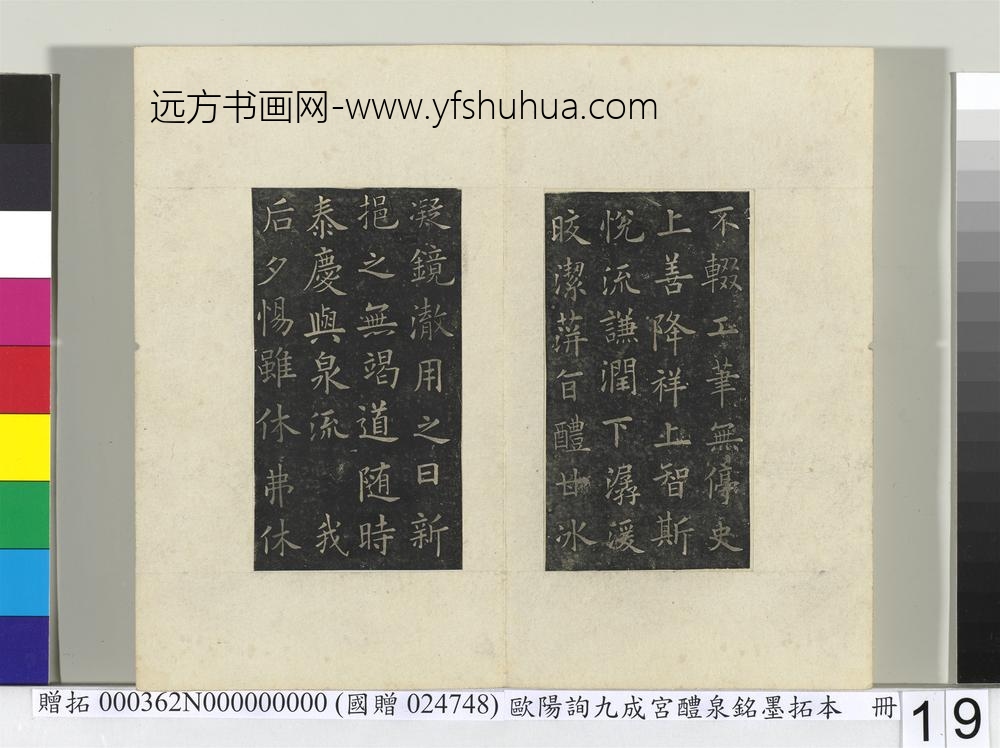 远方书画网-www.yfshuhua.com
不輟工筆無停史
上善降祥上智斯
悅流謙潤下潺湲
皎潔蓱旨醴甘冰
凝鏡澈用之日新
挹之無竭道随時
泰慶與泉流我
后夕惕雖休弗休
贈拓 000362N000000000 (國贈 024748) 歐陽詢九成宮醴泉銘墨拓本 冊
19